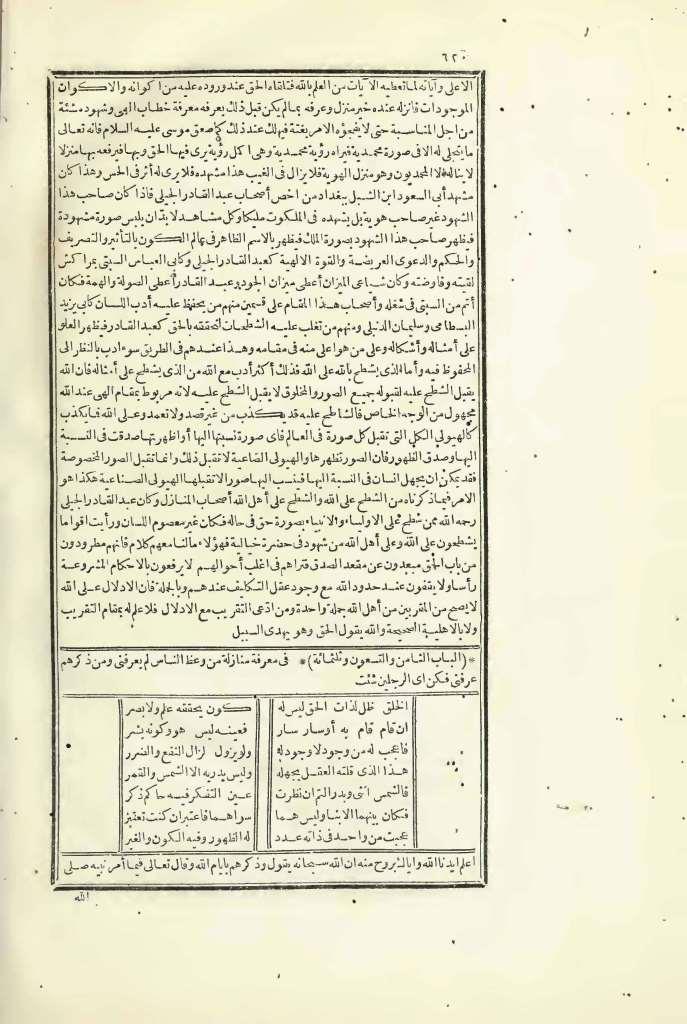 ٦٢٠
الاعلى وآياته لما تعطيه الآيات من العلم بالله فتلقاه الحق عند وروده عليه من اكوانه والاكوان
الموجودات فانزله عنده خير منزل وعرفه بما لم يكن قبل ذلك يعرفه معرفة خطاب الهى وشهود مشئة
من اجل المناسبة حتى لا يفجؤه الامر بغتة فيهلك عند ذلك كما صعق موسى عليه السلام فانه تعالى
ما يتجلى له الا فى صورة محمدية فيراه رؤية محمدية وهى اكمل رؤية يرى فيها الحق وبها فيرفعه بها منزلا
لا يناله الا المحمديون وهو منزل الهوية فلا يزال فى الغيب هذا مشهده فلا يرى له أثر فى الحس وهذا كان
مشهد أبى السعود ابن الشبل ببغداد من اخص أصحاب عبد القادر الجيلى فاذا كان صاحب هذا
الشهود غير صاحب هوية بل يشهده فى الملكوت مليكا وكل مشاهد لا بدّ ان يلبس صورة مشهوده
فيظهر صاحب هذا الشهود بصورة الملك فيظهر بالاسم الظاهر فى عالم الكون بالتأثير والتصريف
والحكم والدعوى العريضة والقوة الالهية كعبد القادر الجيلى وكابى العباس السبتى بمراكش
لقيته وفاوضته وكان شياعى الميزان أعطى ميزان الجود وعبد القادر أعطى الصولة والهمة فكان
أتم من السبتى فى شغله وأصحاب هذا المقام على قسمين منهم من يحفظ عليه أدب اللسان كابى يزيد
البسطامى وسليمان الدنبلى ومنهم من تغلب عليه الشطحات لتحققه بالحق كعبد القادر فيظهر العلو
على أمثاله وأشكاله وعلى من هو اعلى منه فى مقامه وهذا عندهم فى الطريق سوء ادب بالنظر الى
المحفوظ فيه وأما الذى يشطح بالله على الله فذلك أكثر أدب مع الله من الذى يشطح على أمثاله فان الله
يقبل الشطح عليه لقبوله جميع الصور والمخلوق لا يقبل الشطح عليه لانه مربوط بمقام الهى عند الله
مجهول من الوجه الخاص فالشاطح عليه قد يكذب من غير قصد ولا تعمد وعلى الله فما يكذب
كالهيولى الكل التى تقبل كل صورة فى العالم فاى صورة نسبتها اليها أو اظهرتها صدقت فى النسبة
اليها وصدق الظهور فان الصور تظهرها والهيولى الصناعية لا تقبل ذلك وانما تقبل الصور المخصوصة
فقد يمكن ان يجهل انسان فى النسبة اليها فينسب اليها صور الا تقبلها الهيولى الصناعية هكذا هو
الامر فيما ذكرناه من الشطح على الله والشطح على أهل الله أصحاب المنازل وكان عبد القادر الجيلى
رحمه الله ممن شطح على الاولياء والانبياء بصورة حق فى حاله فكان غير معصوم اللسان ورأيت اقواما
يشطحون على الله وعلى أهل الله من شهود فى حضرة خيالية فهؤلاء مالنا معهم كلام فانهم مطرودون
من باب الحق مبعدون عن مقعد الصدق فتراهم فى اغلب أحوالهم لا يرفعون بالاحكام المشروعة
رأسا ولا يقفون عند حدود الله مع وجود عقل التكليف عندهم وبالجملة فان الادلال على الله
لا يصح من المقربين من أهل الله جملة واحدة ومن ادّعى التقريب مع الادلال فلا علم له بمقام التقريب
ولا بالاهلية الصحيحة والله يقول الحق وهو يهدى السبيل
*(الباب الثامن والتسعون وثلثمائة)* فى معرفة منازلة من وعظ الناس لم يعرفنى ومن ذكرهم
عرفنى فكن اى الرجلين شئت
الخلق ظل لذات الحق ليس له كون يحققه علم ولا بصر
ان قام قام به أو سار سار فعينه ليس هو وكونه بشر
فاعجب له من وجود لا وجود له ولو يزول لزال النفع والضرر
هذا الذى قلته العقل يجهله وليس يدريه الا الشمس والقمر
فالشمس انثى وبدر التم ان نظرت عين التفكر فيه حاكم ذكر
فكان بينهما الابنا وليس هما سواهما فاعتبر ان كنت تعتبر
عجبت من واحد فى ذاته عدد له الظهور وفيه الكون والغير
اعلم ايدنا الله وايا بروح منه ان الله سبحانه يقول وذكرهم بايام الله وقال تعالى فيما أمر نبيه صلى
الله